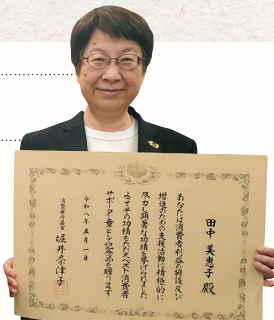 田中 美恵子 殿
あなたは消費者利益の擁護及び
増進のための支援活動に積極的に
尽力し顕著な功績を挙げられました
よってその功績をたたえベスト消費者
サポーター章として記念品を贈ります
令和八年五月一日
消費者庁長官
堀井奈津子